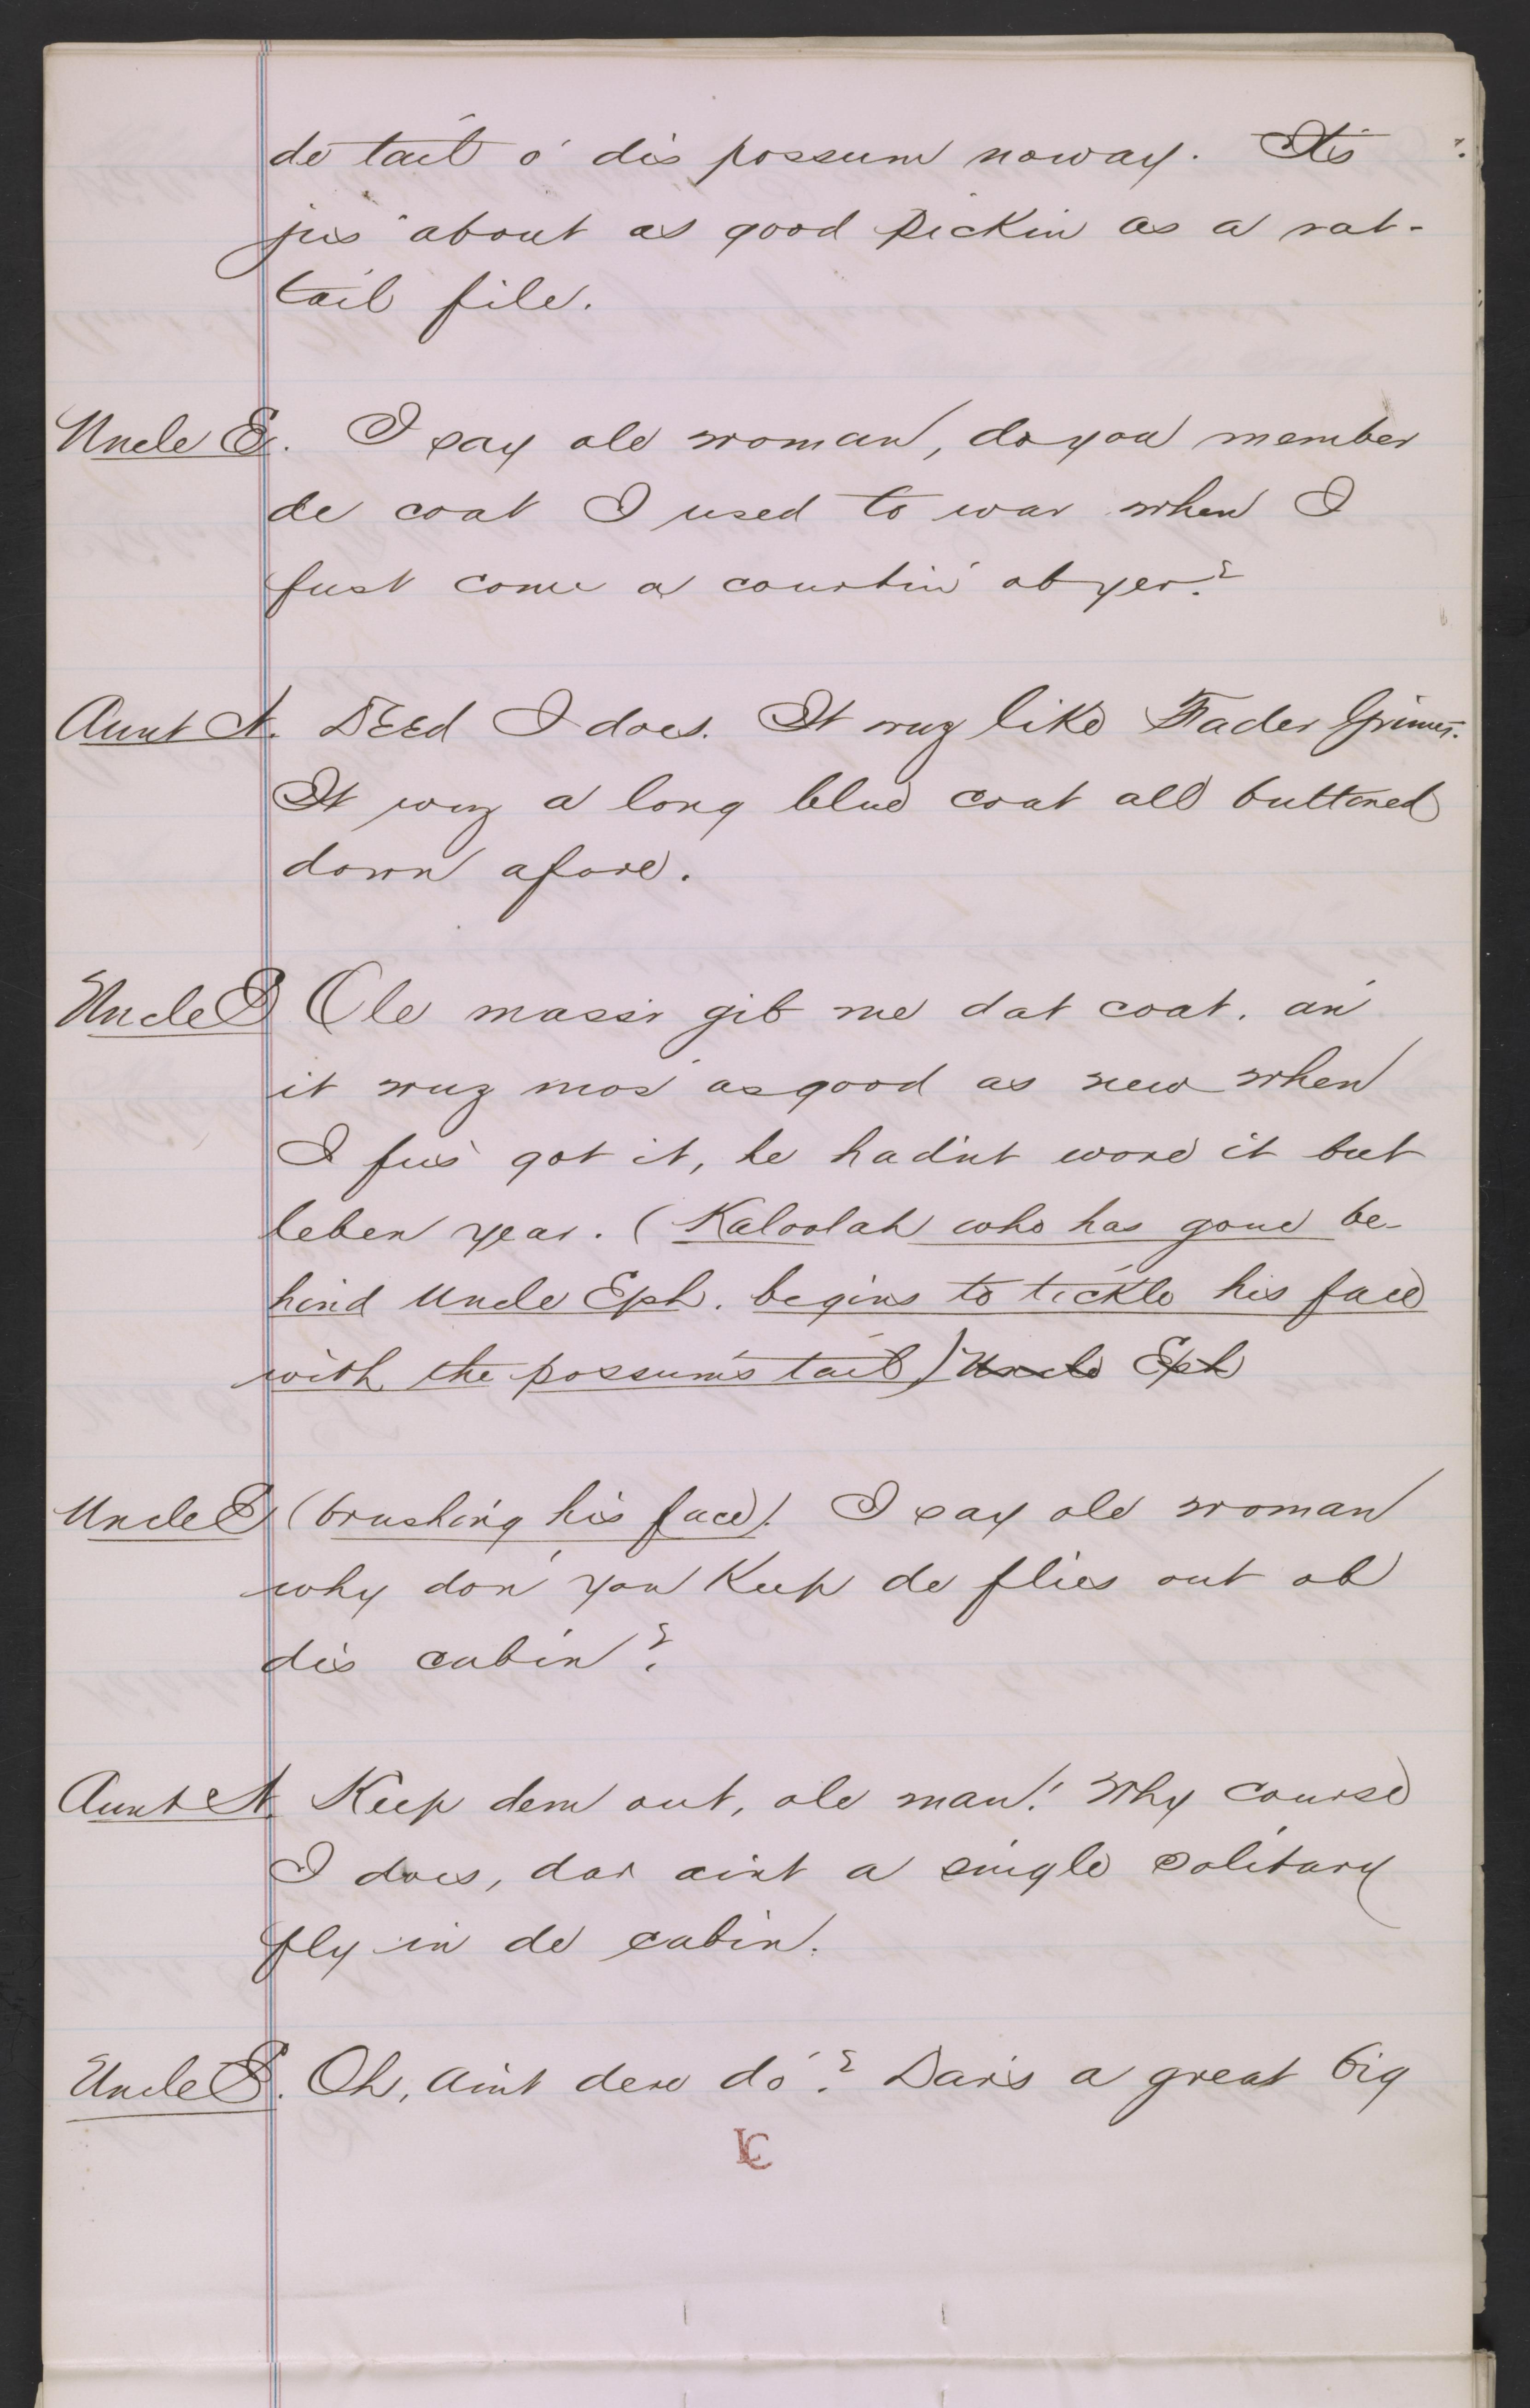 de tail o' dis possum noway. It's
jus' about as good pickin as a rat-
tail file.
Uncle E. I say ole woman, do you member
de coat I used to war when I
fust come a courtin' ob yer?
Aunt N. DEEd I does. It wuz like Fader Grimes.
It wuz a long blue coat all buttoned
down afore.
Uncle E Ole massr gib me dat coat. an'
it wuz mos' as good as new when
I fus' got it, he had'nt wore it but
leben year. (Kaloolah who has gone be-
hind Uncle Eph. begins to tickle his face
with the possum's tail) Uncle Eph
Uncle E (brushing his face). I say ole woman
why don' you keep de flies out ob
dis cabin?
Aunt N. Keep dem out, ole man! Why course
I does, dar aint a single solitary
fly in de cabin.
Uncle E. Oh, aint dere do'? Dar's a great big
LC